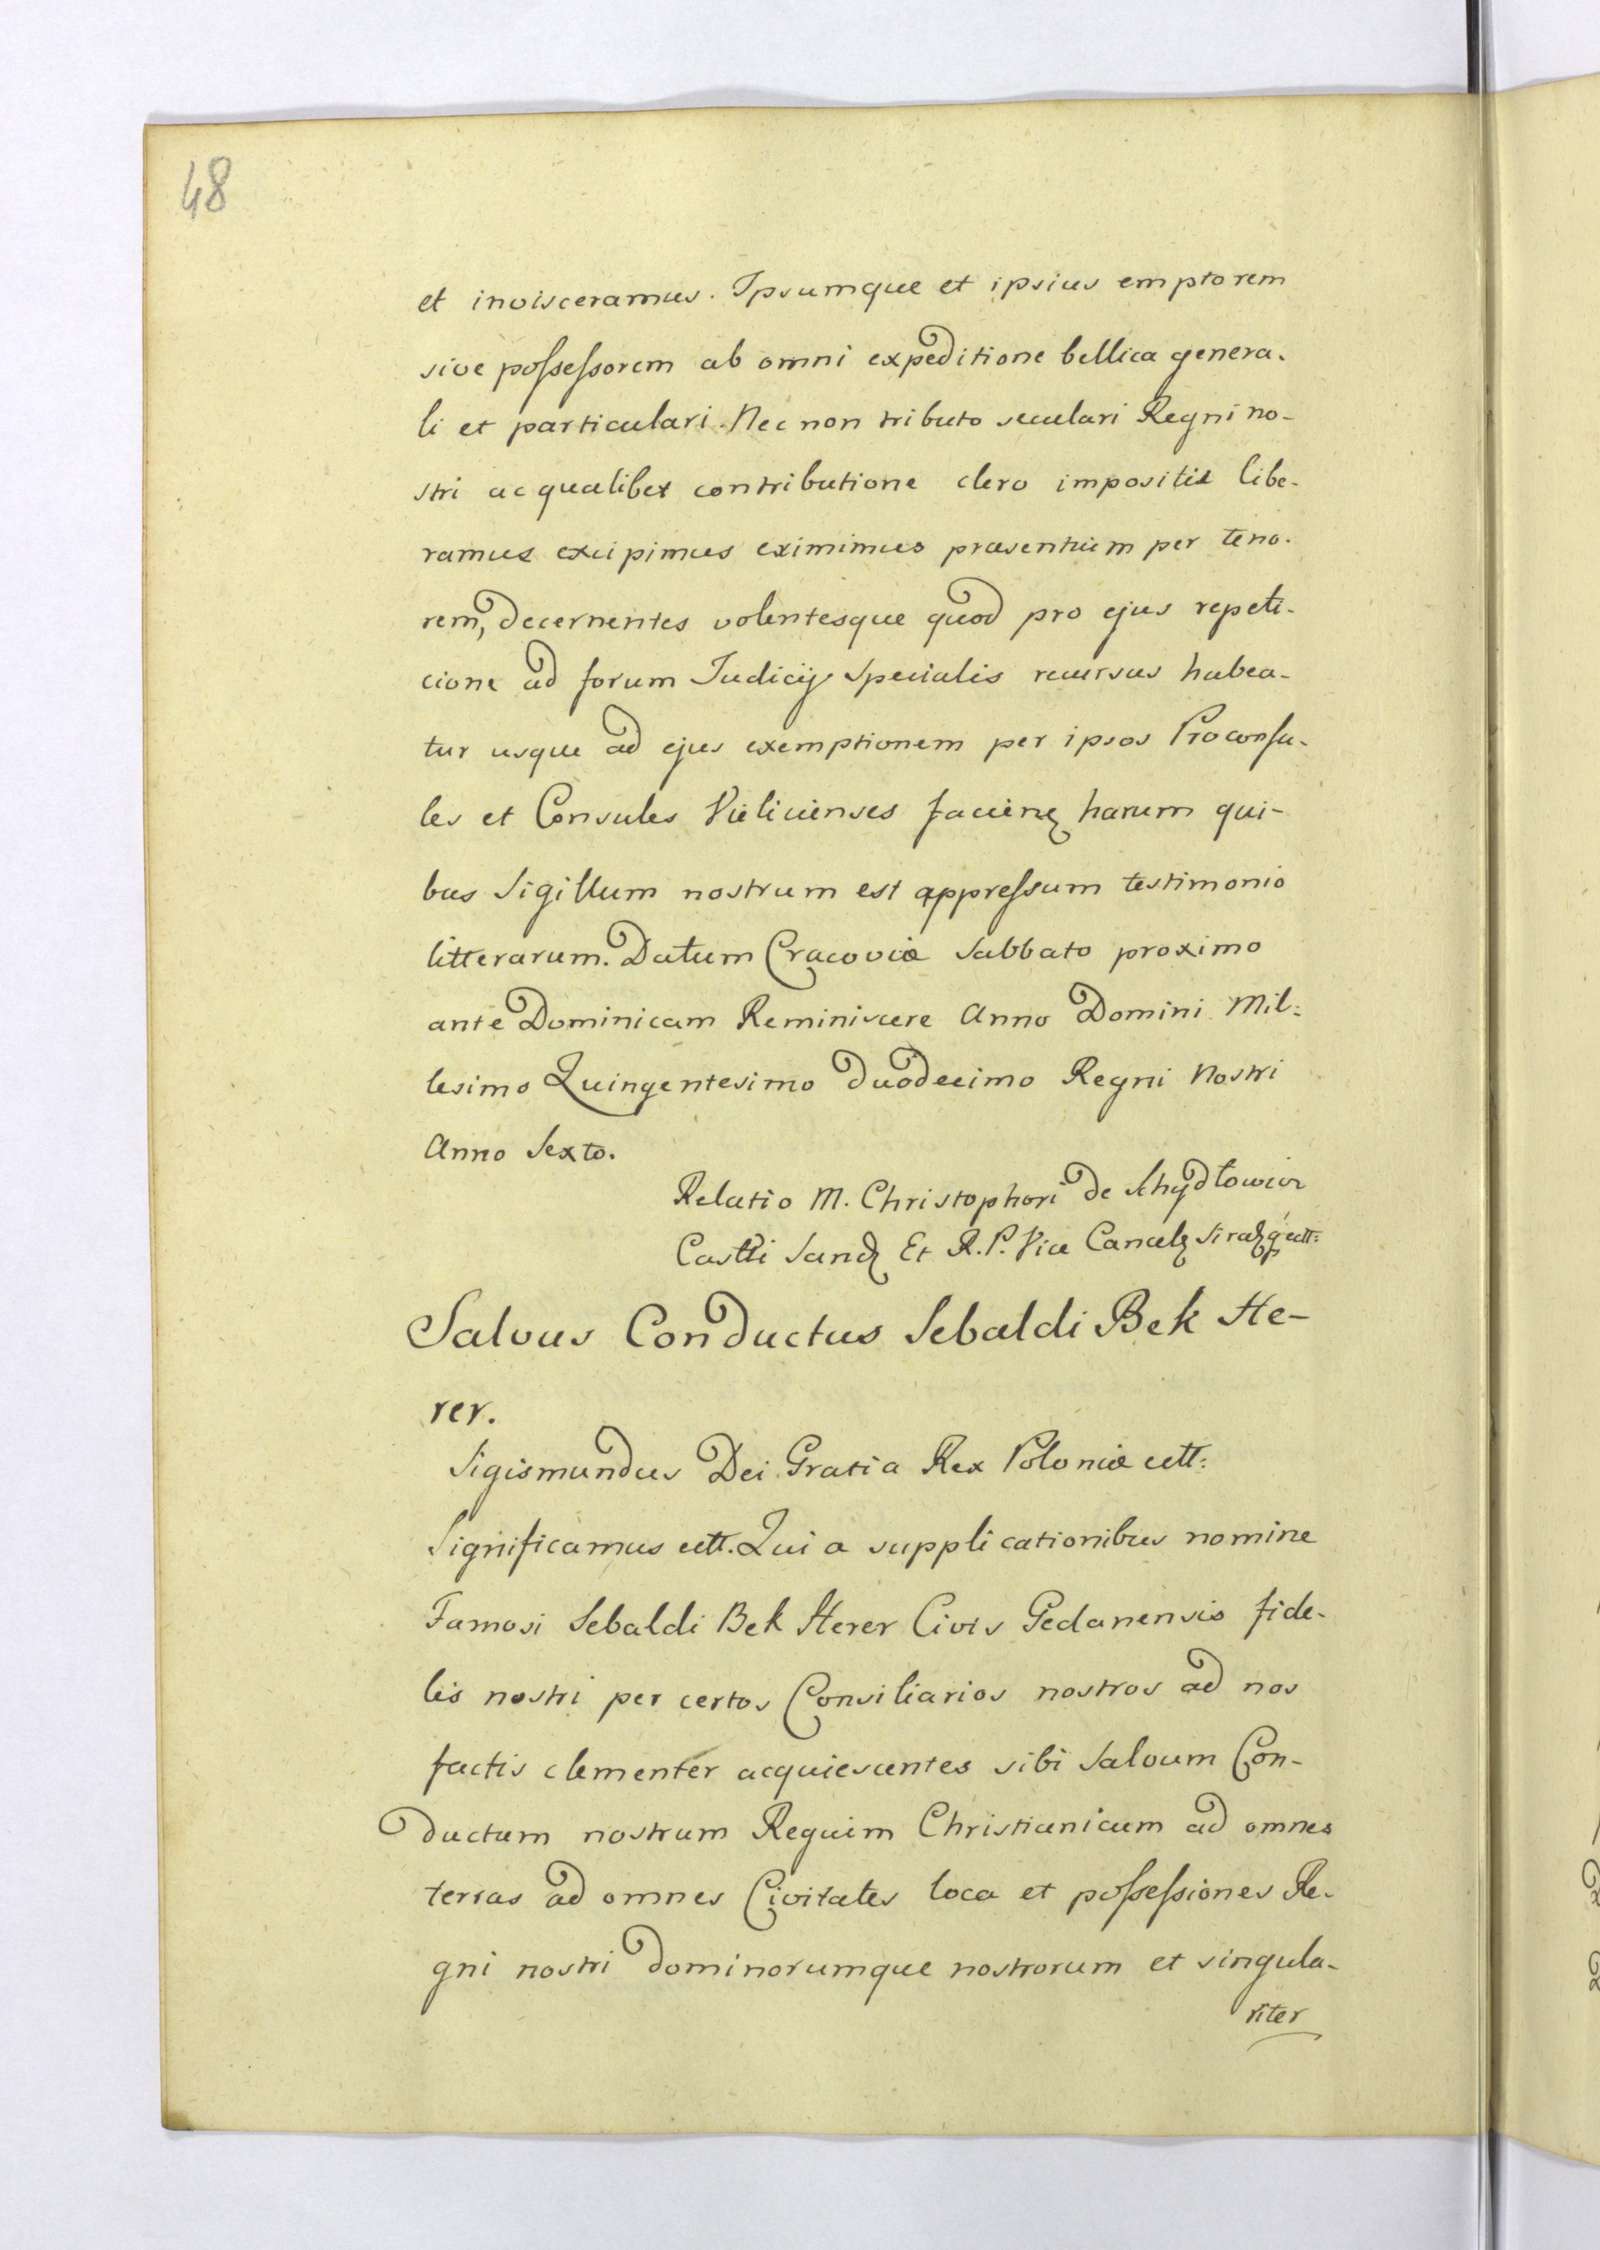 48
et invisceramus. Ipsumque et ipsius emptorem
sive possessorem ab omni expeditione bellica genera-
li et particulari. Nec non tributo seculari Regni no-
stri ac qualibet contributione clero impositis libe-
ramus excipimus eximimus præsentium per teno-
rem, decernentes volentesque quod pro ejus repeti-
cione ad forum Judicij Specialis recursus habea-
tur usque ad ejus exemptionem per ipsos Proconsu-
les et Consules Vielicienses facien harum qui-
bus Sigillum nostrum est appressum testimonio
litterarum. Datum Cracoviæ Sabbato proximo
ante Dominicam Reminiscere Anno Domini Mil-
lesimo Quingentesimo duodecimo Regni Nostri
Anno Sexto.
Relatio M. Christophori de Schydłowicz
Castti Sand Et R. P. Vice Cancel Sirad ectt:
Salvus Conductus Sebaldi Bek He-
rer.
Sigismundus Dei Gratia Rex Poloniæ ectt:
Significamus ectt. Quia supplicationibus nomine
Famosi Sebaldi Bek Herer Civis Gedanensis fide-
lis nostri per certos Consiliarios nostros ad nos
factis clementer acquiescentes sibi Salvum Con-
ductum nostrum Regium Christianicum ad omnes
terras ad omnes Civitates loca et possessiones Re-
gni nostri dominorumque nostrorum et singula-
riter